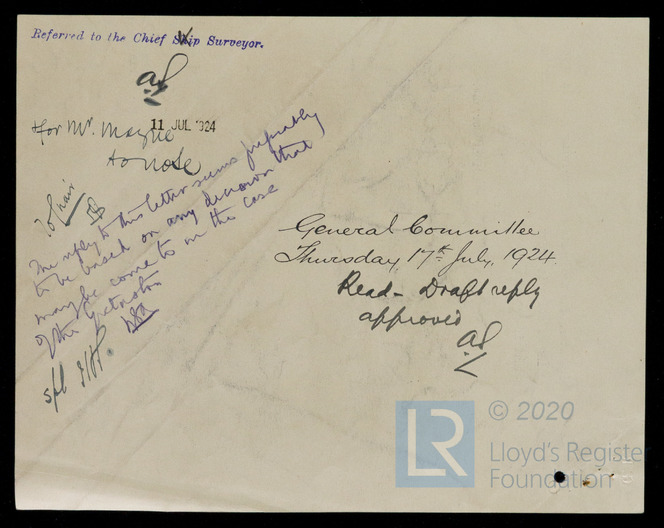 Referred to the Chief Ship Surveyor.
For Mr. Mayne
11 JUL 1924
to note
To Chair
The reply to this letter seems preferably
to be based on any decision that
may be come to in the case
of the
General Committee
Thursday, 17th July, 1924.
Read - Draft reply
approved
LR
© 2020
Lloyd's Register
Foundation